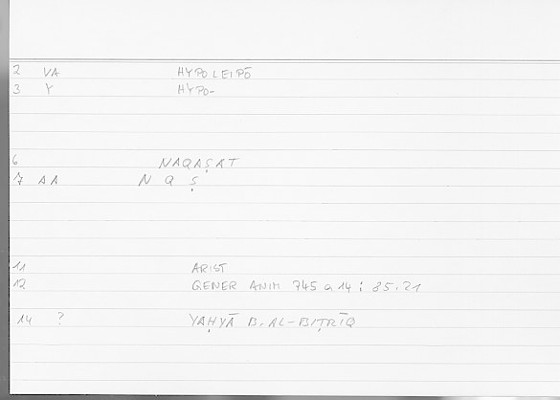 2 VA HYPOLEIPŌ
3 Y HYPO-
6 NAQAṢAT
7 AA N Q Ṣ
11 ARIST
12 GENER ANIM 745 a 14 : 85.21
14 ? YAḤYĀ B. AL-BIṬRĪQ